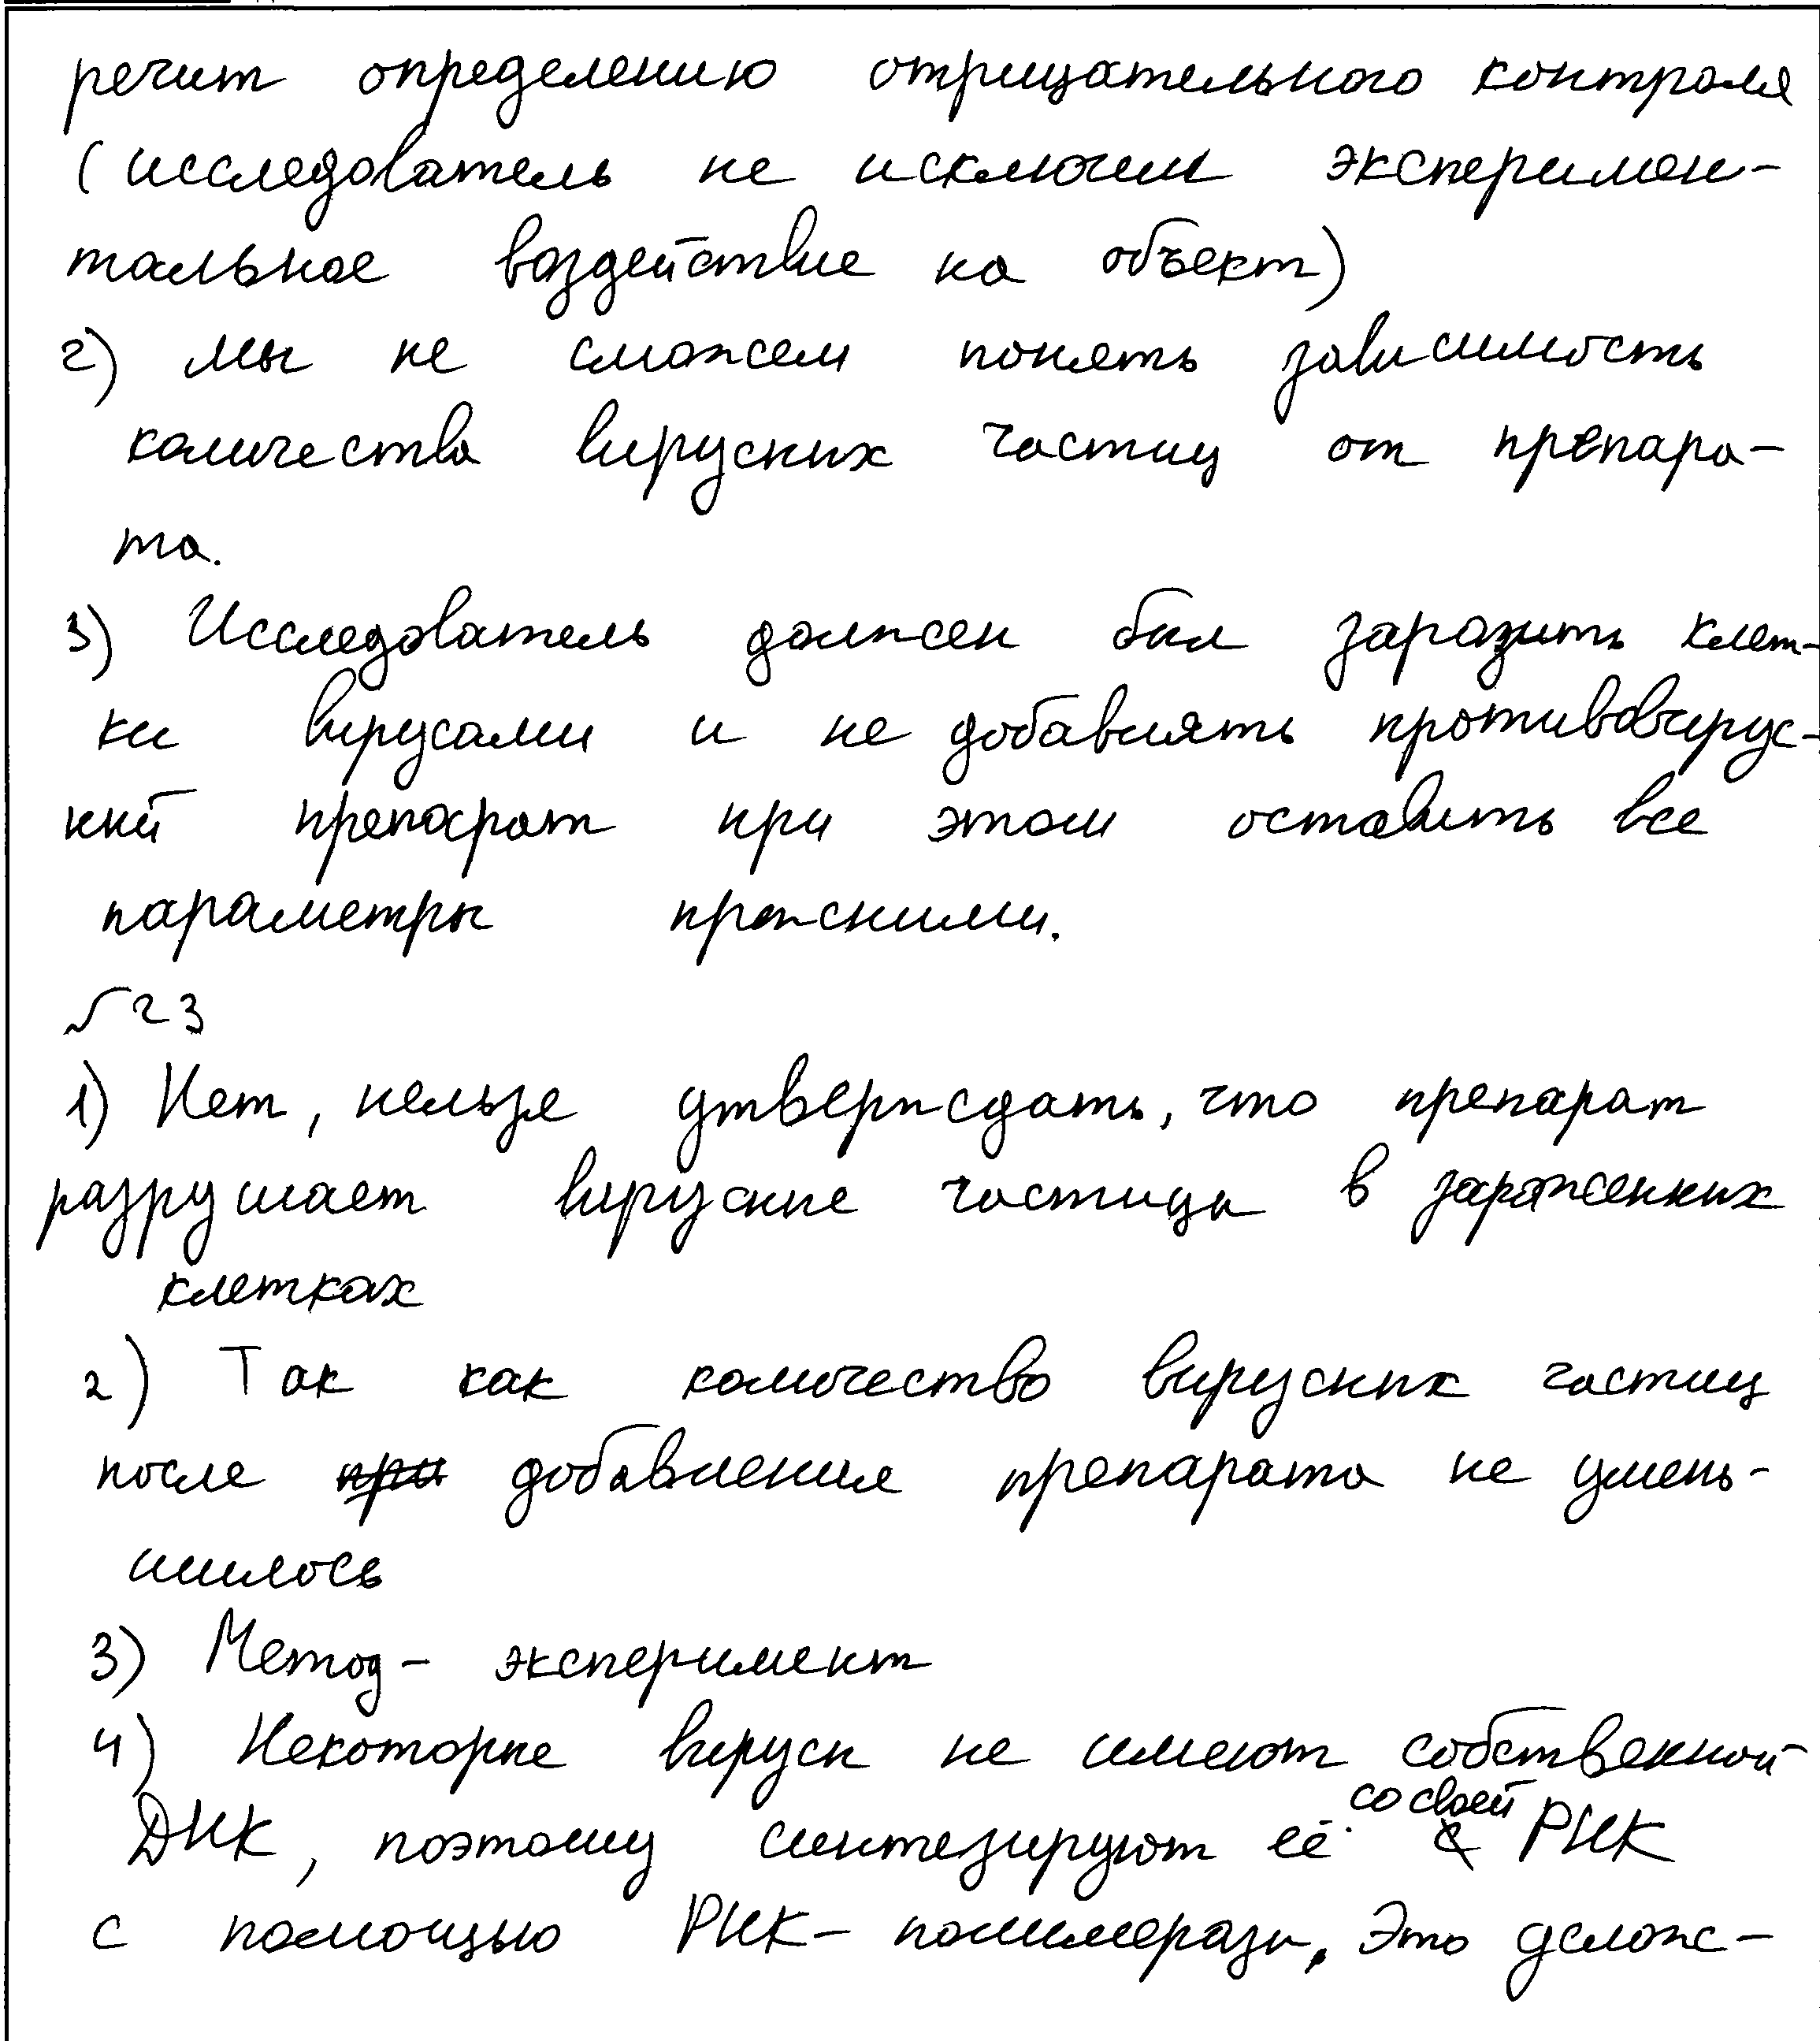 речит определению отрицательного контроля
(исследователь не исключил эксперимен-
тальное воздействие на объект)
2) Мы не сможем понять зависимость
количества вирусных частиц от препара-
та.
3) Исследователь должен был заразить клет-
ки вирусами и не добавлять противовирус-
ный препарат при этом оставить все
параметры прежними.
№23
1) Нет, нельзя утверждать, что препарат
разрушает вирусные частицы в зараженных
клетках
2) Так как количество вирусных частиц
после при добавления препарата не умень-
шилось
3) Метод - эксперимент
4) Некоторые вирусы не имеют собственной
ДНК, поэтому синтезируют её со своей РНК
с помощью РНК-полимеразы. Это услож-